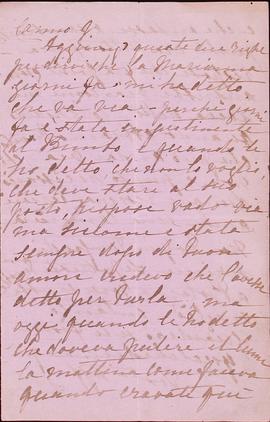 Carmo G
Aggiungo queste due righe
per dirvi che la Marianna
giorni fa mi ha detto
che va via perché giorni
fa è stata
al Bimbo e quando le
ho detto, che non lo voglio
che deve stare al suo
posto, rispose vado via
ma siccome è stata
sempre dopo di buon
umore credevo che l'avesse
detto per burla, ma
oggi quando le ho detto
che doveva pulire il lume
la mattina come faceva
quando eravate qui